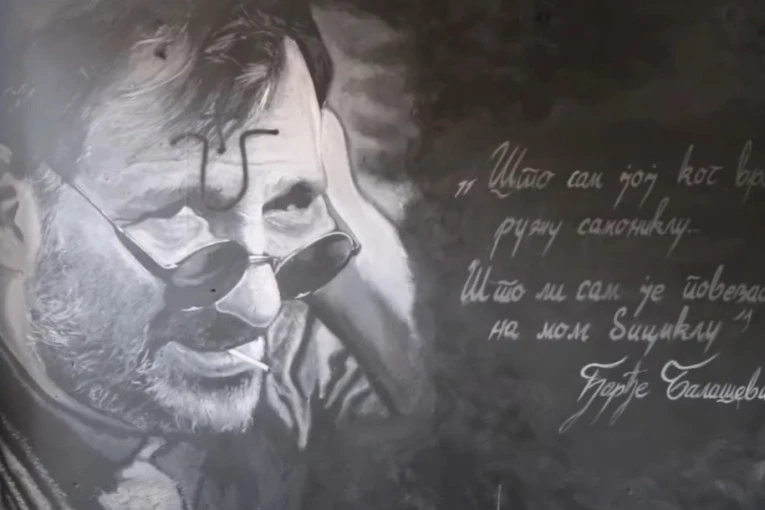 „ Што сам јој код вра
ружу самониклу...
Што ли сам је повезао
на мом бициклу "
Ђорђе Балашеви